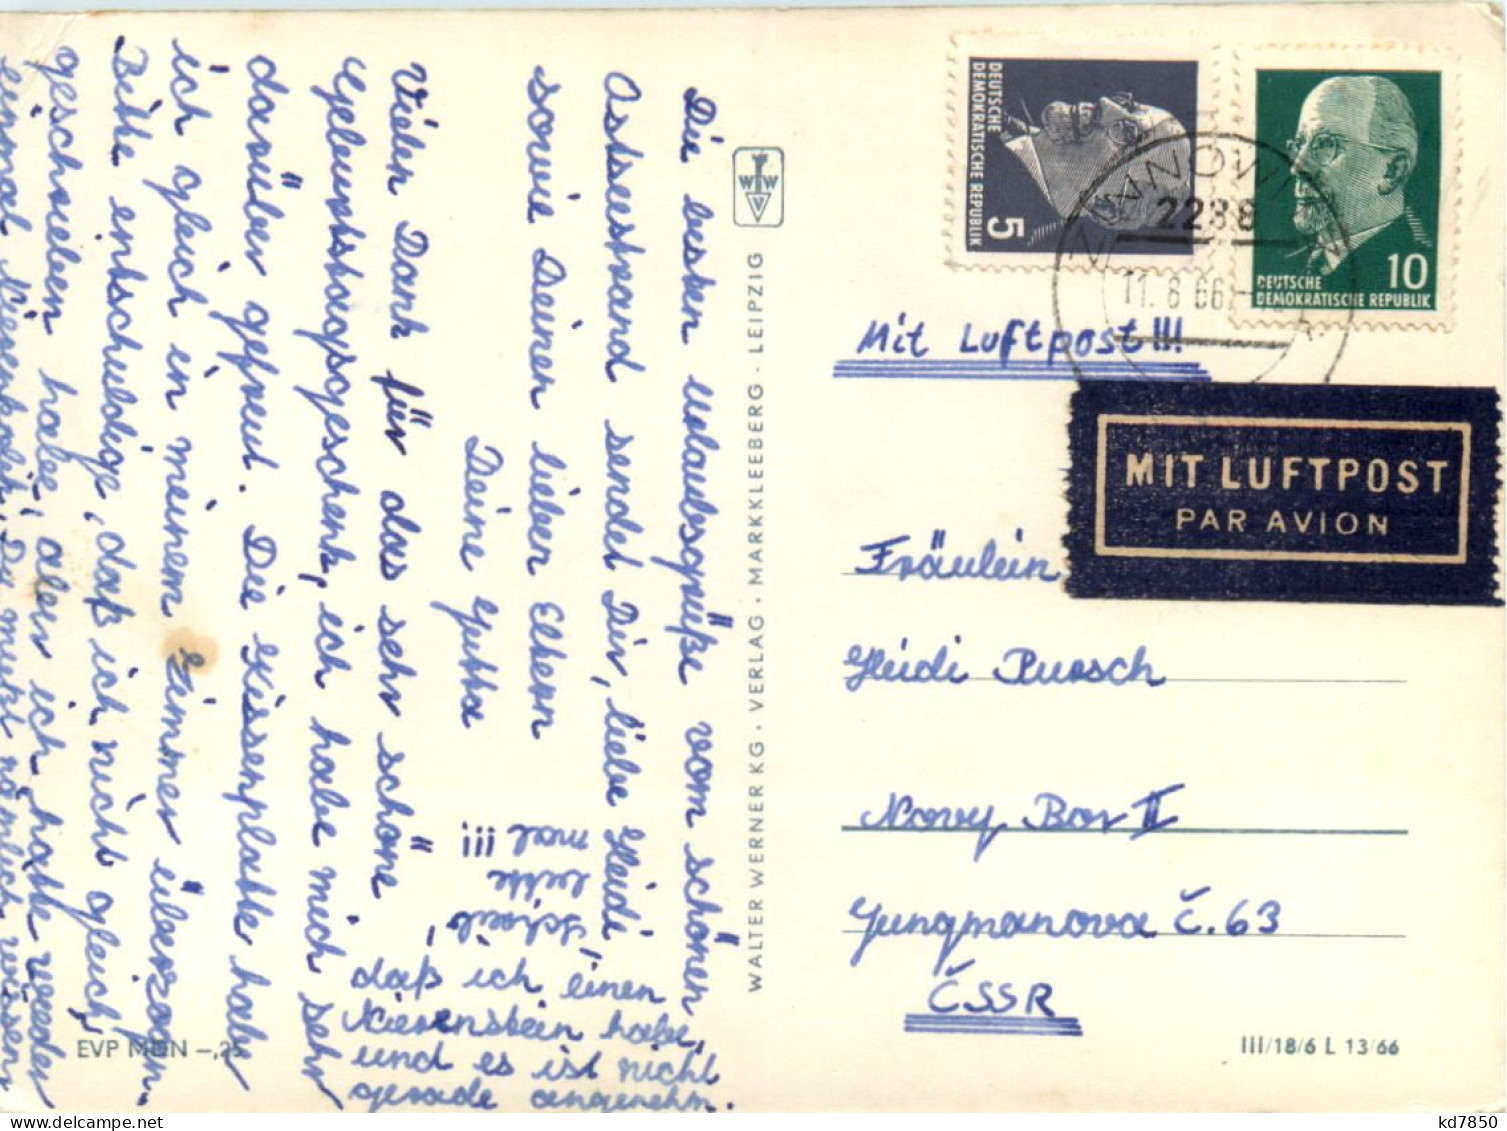 Die besten Urlaubsgrüße vom schönen
Ostseestrand sendet Dir, liebe Heidi,
sowie Deinen lieben Eltern
Deine Jutta
Vielen Dank für das sehr schöne
Geburtstagsgeschenk, ich habe mich sehr
darüber gefreut. Die Kissenplatte habe
ich gleich in meinem Zimmer überzogen.
Bitte entschuldige, daß ich nicht gleich
geschrieben habe, aber ich hatte wieder
einmal Nierenkolik. Du mußt nämlich wissen
daß ich einen
Nierenstein habe,
und es ist nicht
gerade angenehm.
Schreib
bitte
mal
!!!
WALTER WERNER KG · VERLAG · MARKKLEEBERG · LEIPZIG
WWV
EVP MDN –,25
DEUTSCHE
DEMOKRATISCHE REPUBLIK
5
10
DEUTSCHE
DEMOKRATISCHE REPUBLIK
ZINNOWITZ
2238
11. 8 66
Mit Luftpost!!!
MIT LUFTPOST
PAR AVION
Fräulein
Heidi Pursch
Novy Bor II
Jungmanova Č. 63
ČSSR
III/18/6 L 13/66
kd7850